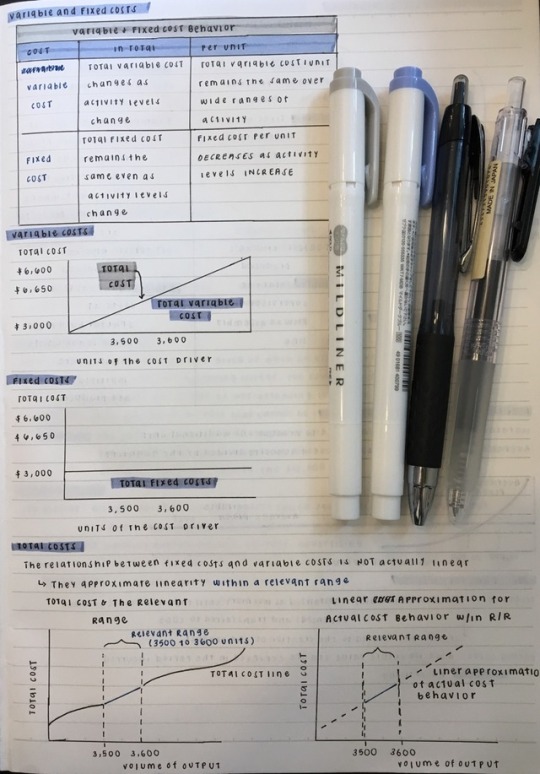 Variable and Fixed Costs
Variable & Fixed Cost Behavior
Cost In Total Per Unit
Variable Cost
Total variable cost changes as activity levels change
Total variable cost/unit remains the same over wide ranges of activity
Fixed Cost
Total fixed cost remains the same even as activity levels change
Fixed cost per unit DECREASES as activity levels INCREASE
Variable Costs
Total Cost
$6,600
$6,650
$3,000
Total Cost
Total Variable Cost
3,500 3,600
Units of the cost driver
Fixed Costs
Total Cost
$6,600
$6,650
$3,000
Total Fixed Costs
3,500 3,600
Units of the cost driver
Total Costs
The relationship between fixed costs and variable costs is NOT actually linear
↳ They approximate linearity within a relevant range
Total Cost & The Relevant
Range
Relevant Range
(3500 to 3600 units)
Total Cost
Total cost line
3,500 3,600
Volume of output
Linear Approximation for
Actual Cost Behavior w/in R/R
Relevant Range
Total Cost
Liner approximation
of actual cost
behavior
3500 3600
Volume of output
MILDLINER